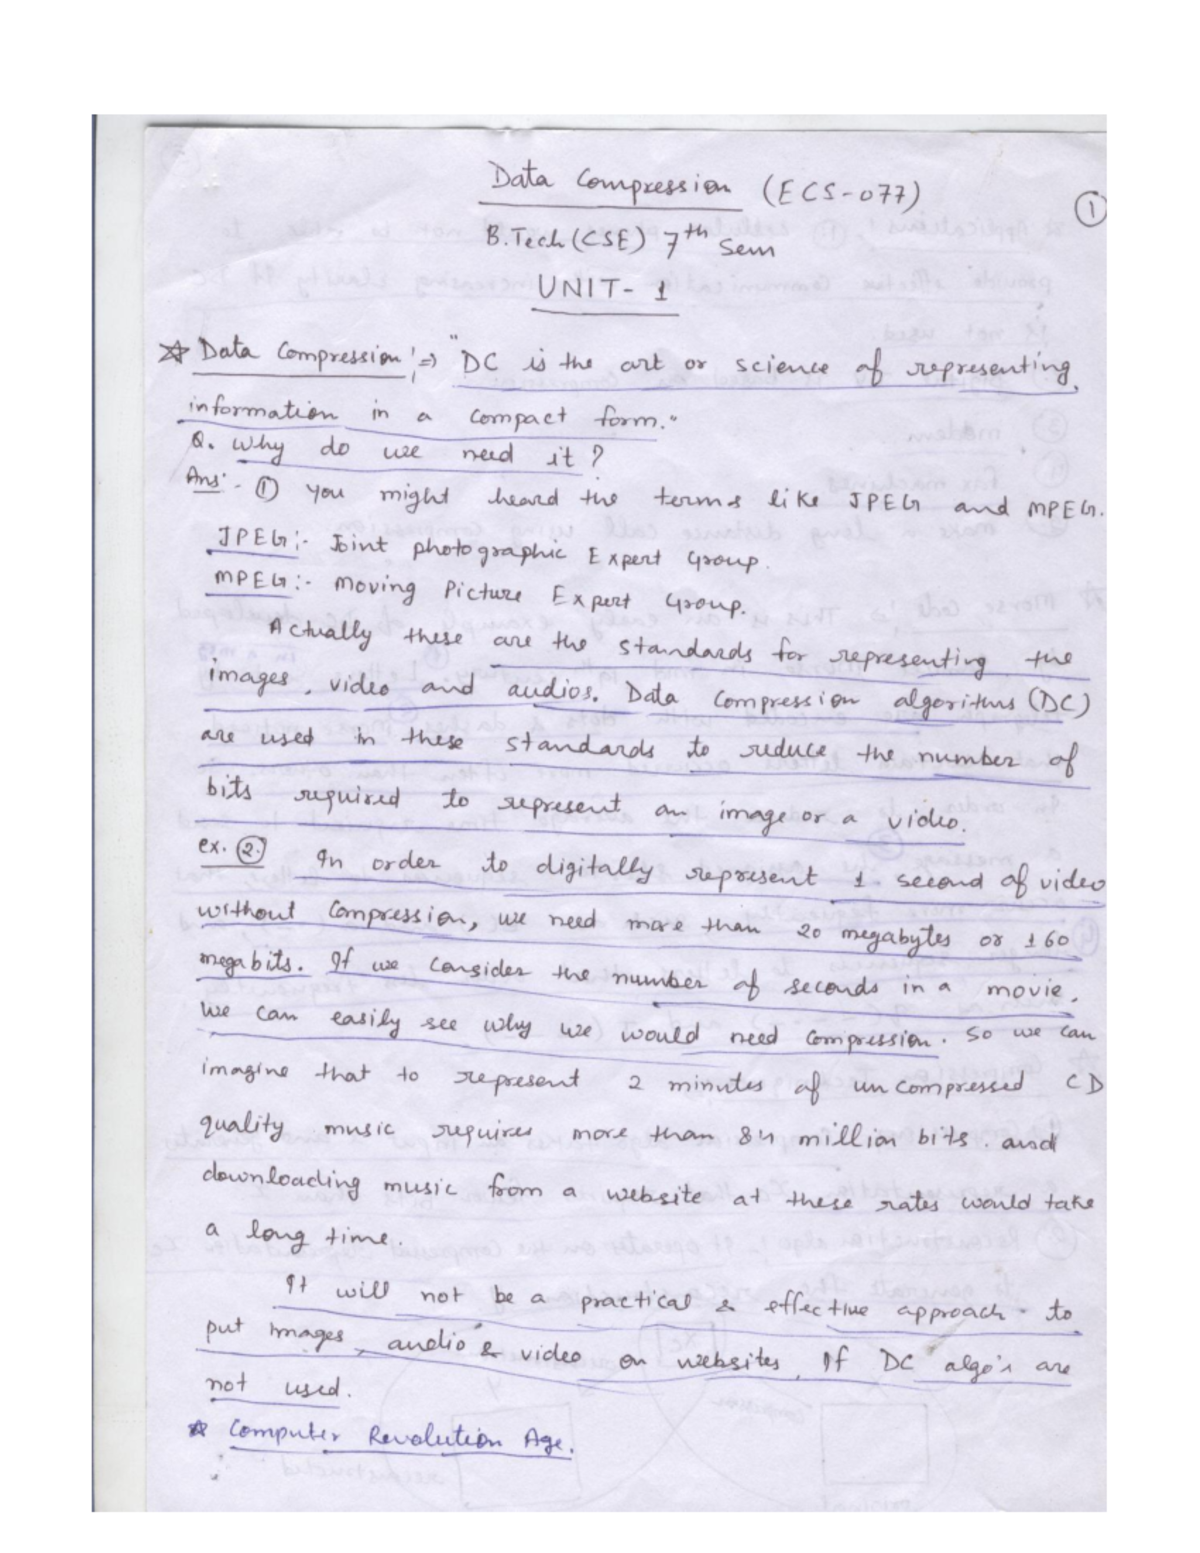 Data Compression (ECS-077)
①
B.Tech (CSE) 7th Sem
UNIT- 1
☆ Data Compression :⇒ "DC is the art or science of representing
information in a compact form."
Q. Why do we need it ?
Ans:- ① You might heard the terms like JPEG and MPEG.
JPEG:- Joint photographic Expert Group.
MPEG:- Moving Picture Expert Group.
Actually these are the standards for representing the
images, video and audios. Data Compression algorithms (DC)
are used in these standards to reduce the number of
bits required to represent an image or a video.
ex. ②. In order to digitally represent 1 second of video
without Compression, we need more than 20 megabytes or 160
megabits. If we consider the number of seconds in a movie,
we can easily see why we would need compression. So we can
imagine that to represent 2 minutes of uncompressed CD
quality music requires more than 84 million bits. and
downloading music from a website at these rates would take
a long time.
It will not be a practical & effective approach to
put images, audio & video on websites, If DC algo's are
not used.
☆ Computer Revolution Age.